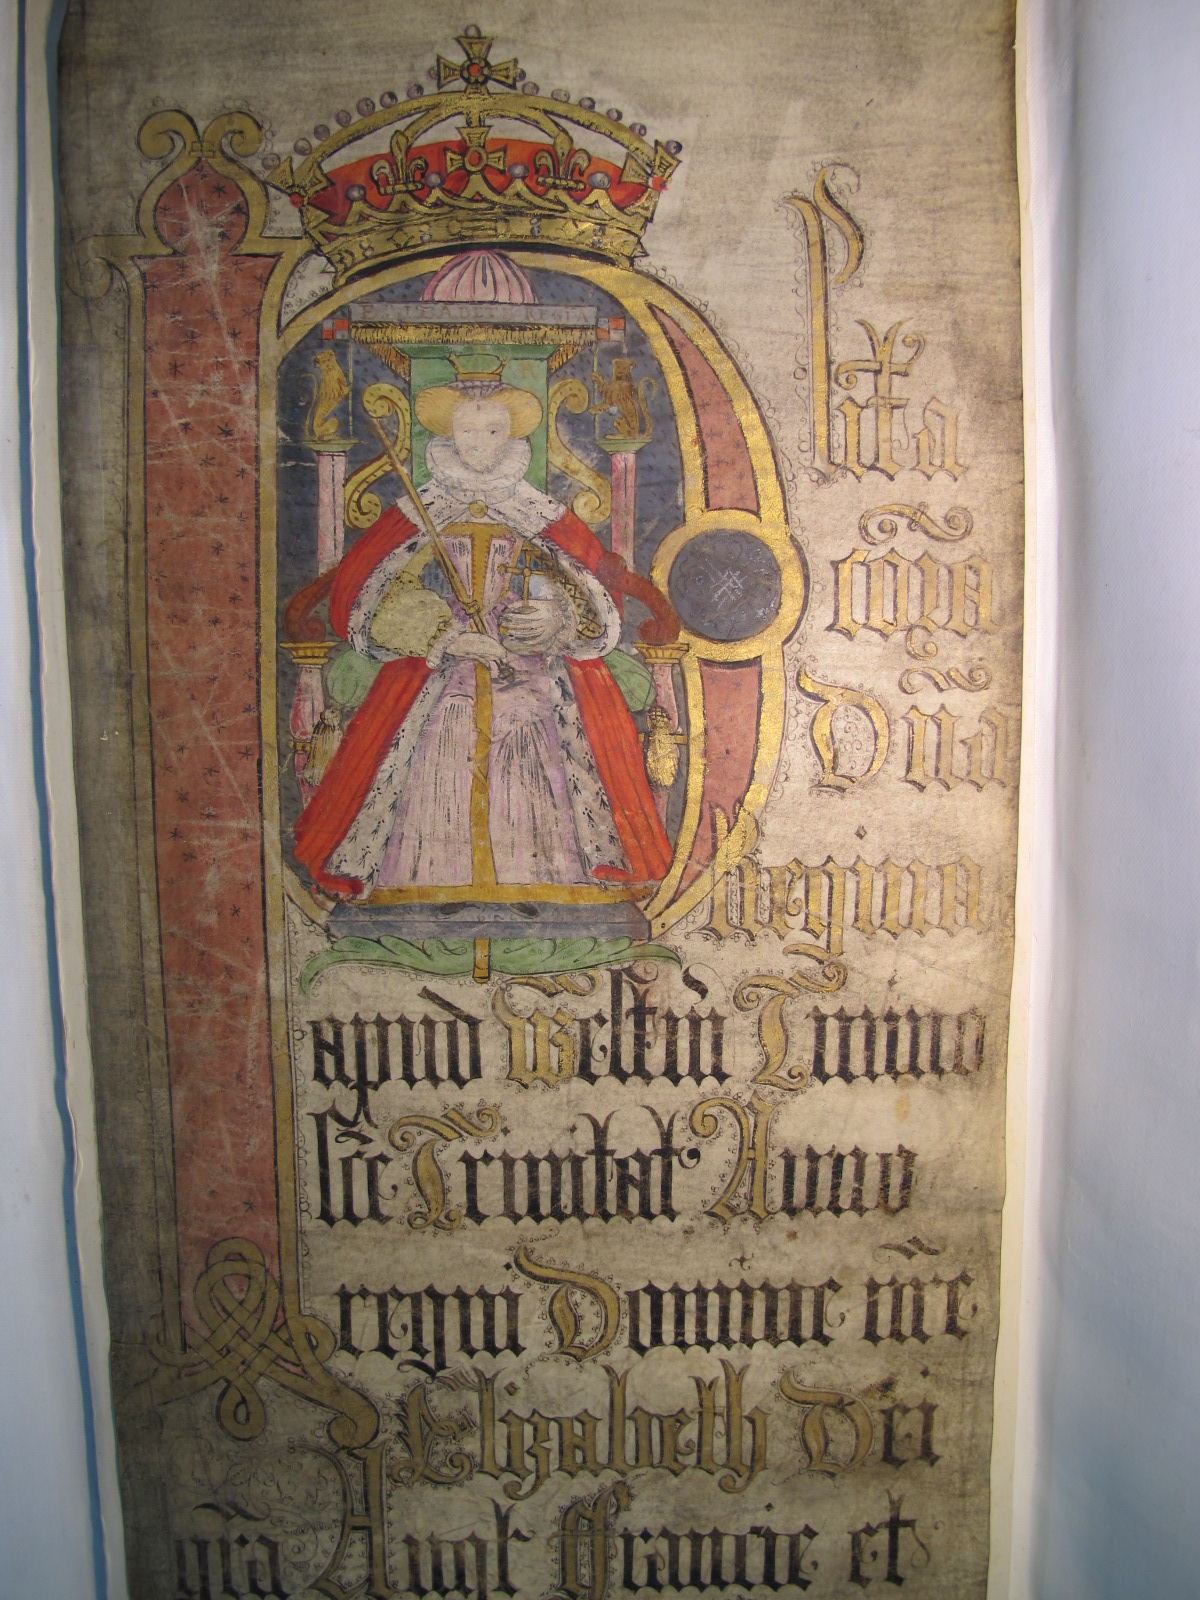 ELISABETH REGINA
Plita
corā
Dnā
Regina
apud Westm̄ Termino
scē Trinitat' Anno
regni Domine nr̄e
Elizabeth Dei
gr̄a Angl Francie et